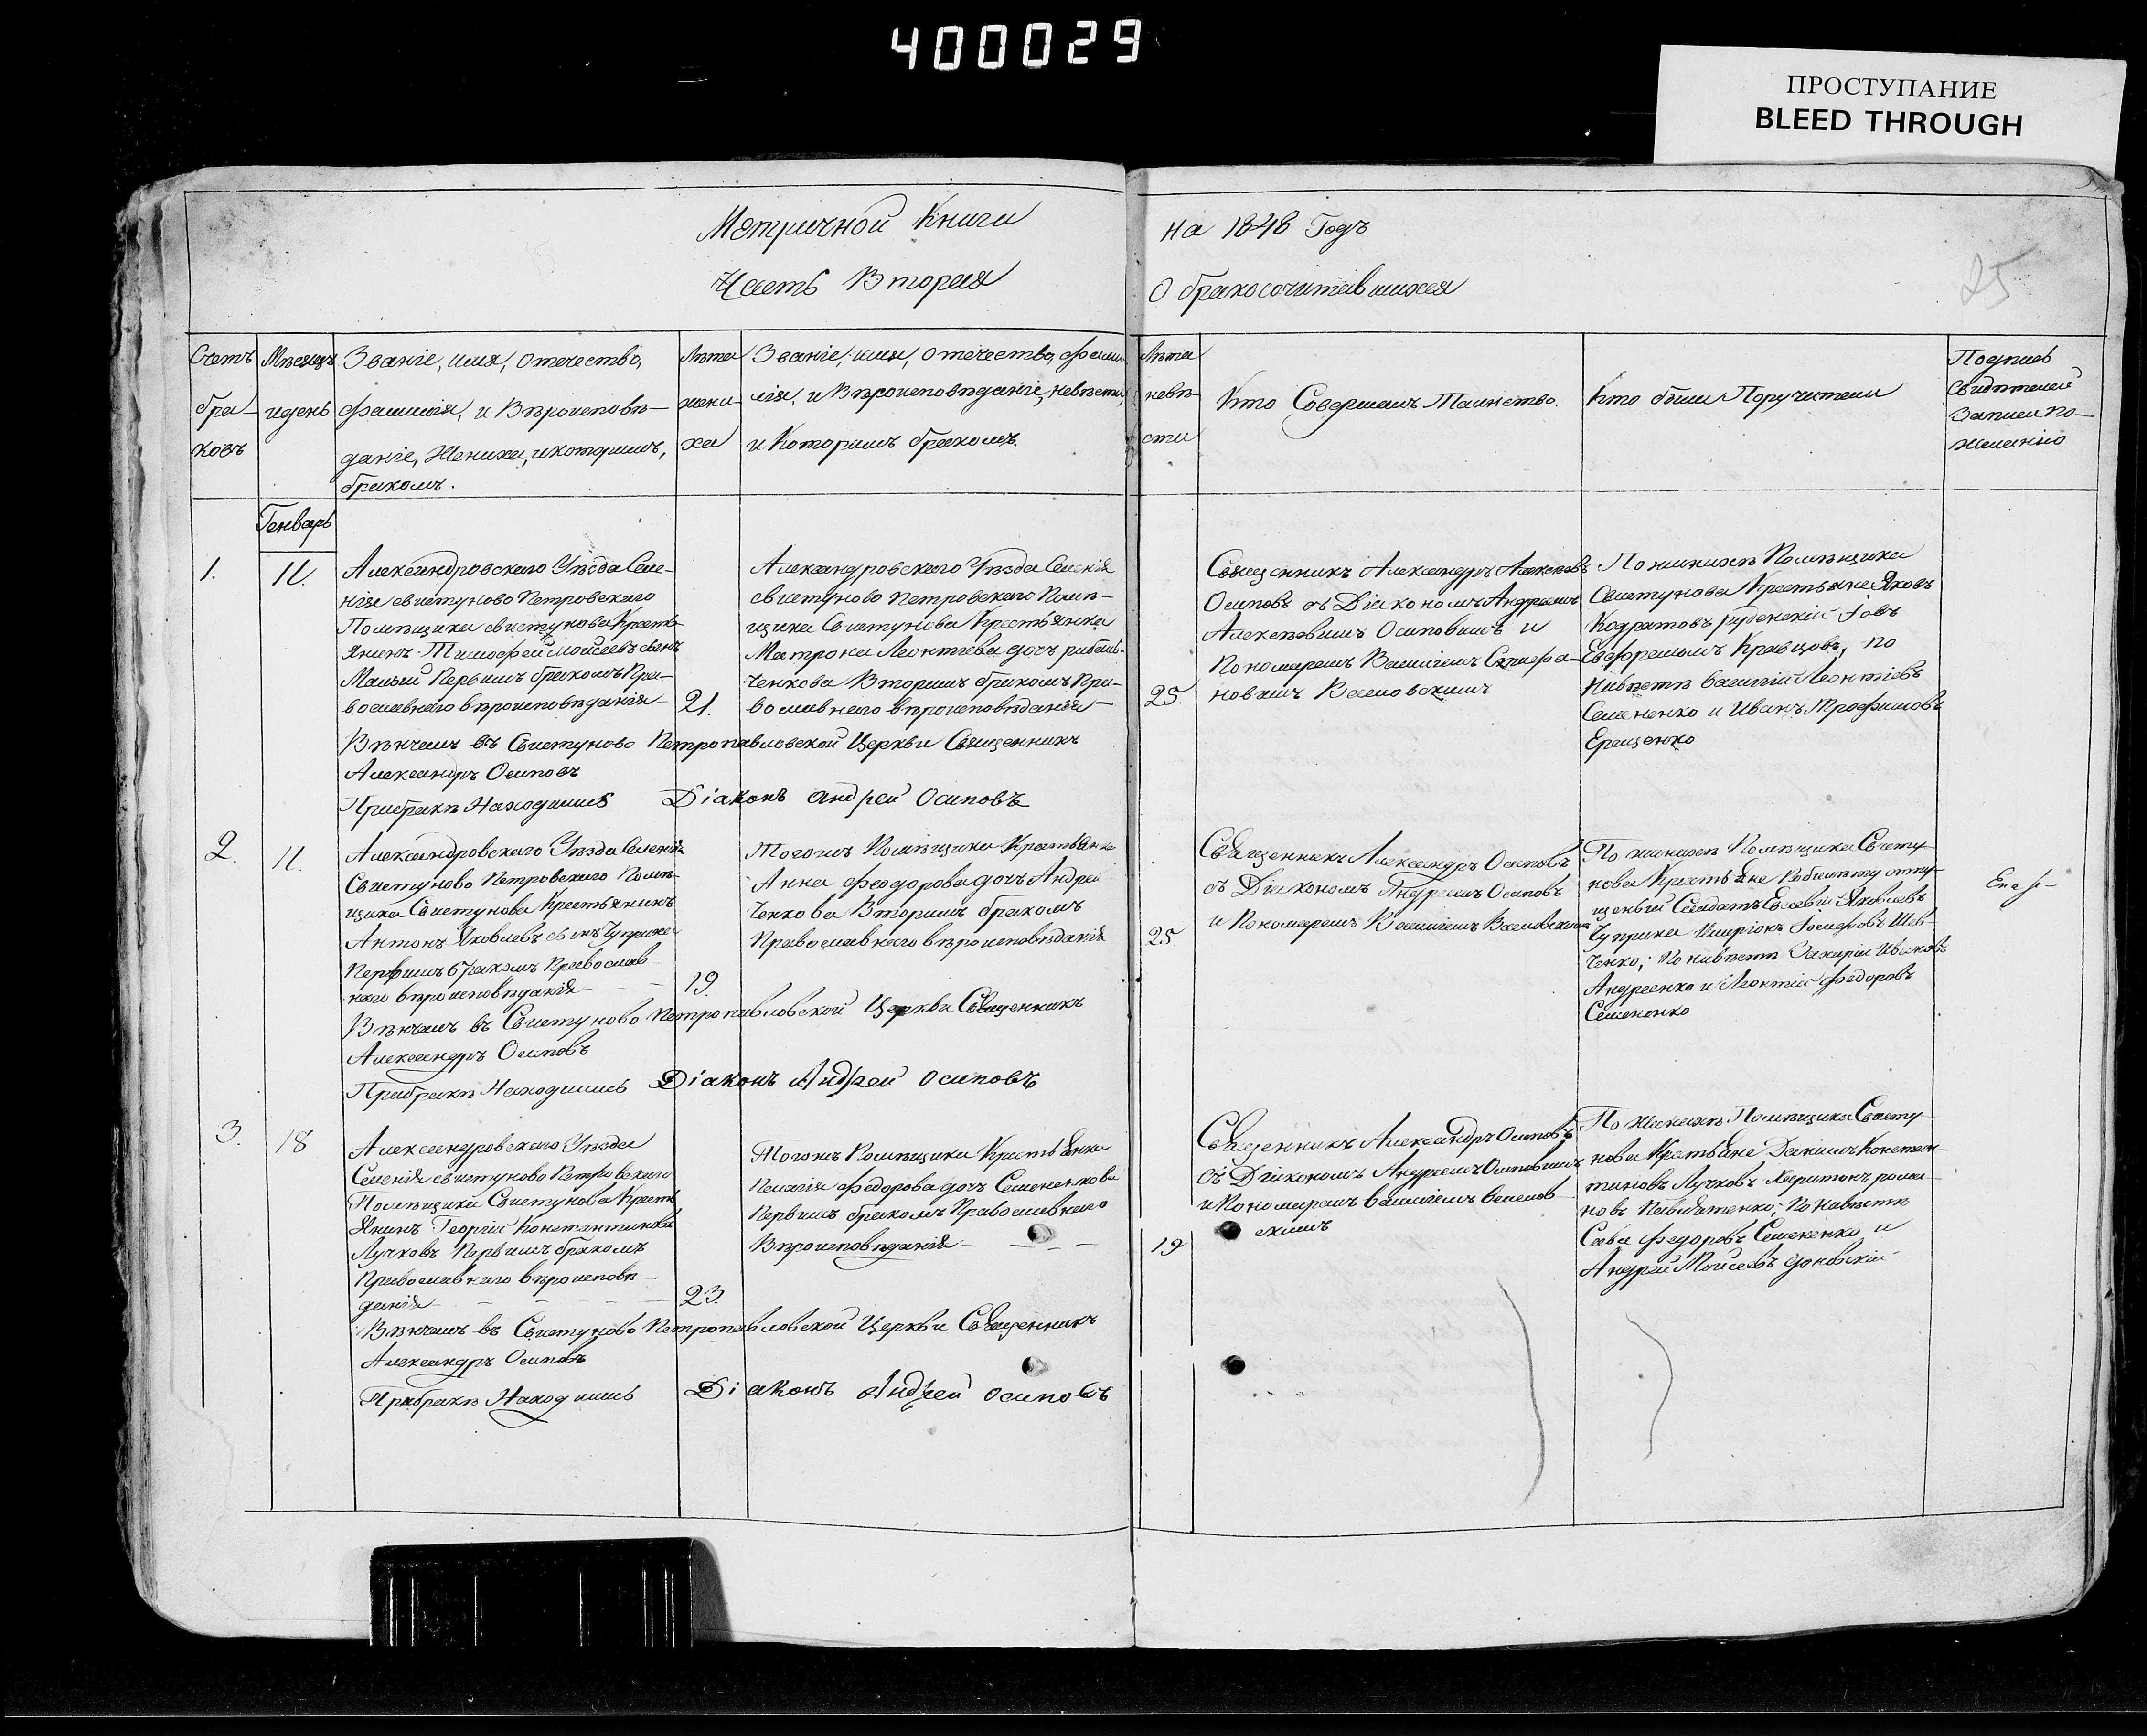 400029
ПРОСТУПАНИЕ
BLEED THROUGH
Метричной Книги
на 1848 Годъ
Часть Вторая
О бракосочитавшихся
25
Счетъ
бра-
ковъ
Мѣсяцъ
и день
Званіе, имя, отечество,
фамилія, и Вѣроисповѣ-
даніе, Жениха, и которимъ,
бракомъ.
Лѣта
жени-
ха
Званіе, имя, отечество, фами-
лія, и Вѣроисповѣданіе, невѣсты,
и Которимъ бракомъ.
Лѣта
невѣ-
сти
Кто Совершалъ Таинство.
Кто были Поручители
Подпись
Свидѣтелей
Записи по-
желанію
Генварь
1.
11.
Александровскаго Уѣзда Селе-
нія свистуново Петровскаго
Помѣщика свистунова Крестья-
янинъ Тимофей моисеевъ сынъ
Малый Первимъ бракомъ Пра-
вославнаго вѣроисповѣданія
21.
Александровскаго Уѣзда Селенія
свистуново Петровскаго Помѣ-
щика Свистунова Крестьянка
Матрона Леонтіева дочь
ченкова Вторимъ бракомъ Пра-
вославнаго вѣроисповѣданія
25.
Священникъ Александръ Алексѣевъ
Осиповъ съ Діакономъ Андреемъ
Алексѣевимъ Осиповимъ и
Пономаремъ Василіемъ
новимъ Васмовскимъ
По жинихѣ Помѣщика
Свистунова Крестьяне Яковъ
Кодратовъ Іовъ
Кравцовъ, по
Нивѣстѣ василій Леонтіевъ
Семененко и Иванъ Трофимовъ
Ерещенко
Вѣнчалъ въ Свистуново Петропавловской Церкви Священникъ
Александръ Осиповъ
При бракѣ Находились Діаконъ Андрей Осиповъ
2.
11.
Александровскаго Уѣзда Селенія
Свистуново Петровскаго Помѣ-
щика Свистунова Крестьянинъ
Антонъ Яковлевъ сынъ Чуприна
Первимъ бракомъ Православ-
наго вѣроисповѣданія
19.
Тогожъ Помѣщика Крестьянка
Анна Феодорова дочь Андрей
ченкова Вторимъ бракомъ
Православнаго вѣроисповѣданія
25.
Священникъ Александръ Осиповъ
съ Діакономъ Андреемъ Осиповъ
и Пономаремъ Василіемъ Васмовскимъ
По жинихѣ Помѣщика Свисту-
нова Крестьяне отпу-
щеный Солдатъ Евсевій Яковлевъ
Чуприна Шев-
ченко; По нивѣстѣ Захарій Ивановъ
Андреенко и Леонтій Федоровъ
Семененко
Вѣнчалъ въ Свистуново Петропавловской Церкви Священникъ
Александръ Осиповъ
При бракѣ Находились Діаконъ Андрей Осиповъ
3.
18
Александровскаго Уѣзда
Селенія свистуново Петровскаго
Помѣщика Свистунова Кресть
янинъ Георгій Константиновъ
Лучковъ Первимъ бракомъ
Православнаго вѣроисповѣ-
данія
23.
Тогожъ Помѣщика Крестьянка
Пелагія Федорова дочь Семененкова
Первимъ бракомъ Православнаго
Вѣроисповѣданія
19
Священникъ Александръ Осиповъ
съ Діакономъ Андреемъ Осиповимъ
и Пономаремъ василіемъ
скимъ
По жинихѣ Помѣщика Свисту-
нова Крестьяне Даніилъ Констан-
тиновъ Лучковъ Харитонъ рома-
новъ По нивѣстѣ
Сава Федоровъ Семененко и
Андрей Моисеевъ
Вѣнчалъ въ Свистуново Петропавловской Церкви Священникъ
Александръ Осиповъ
При бракѣ Находились Діаконъ Андрей Осиповъ